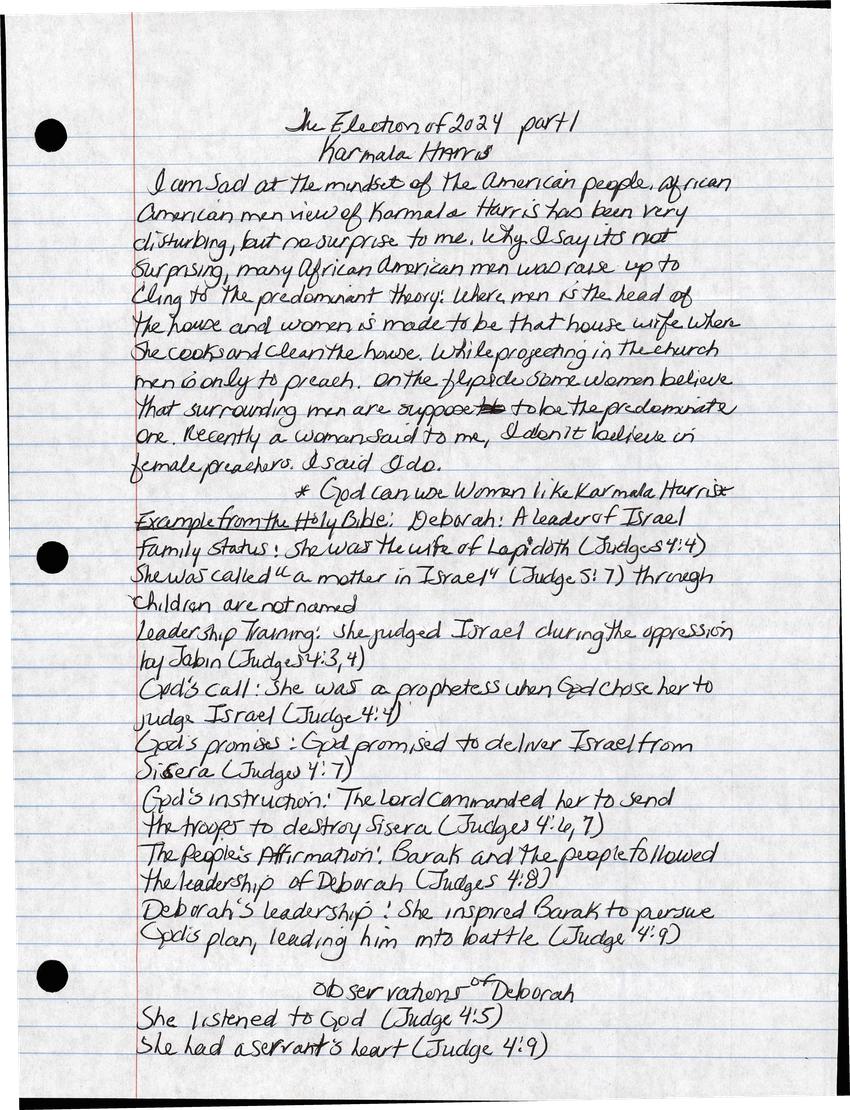 The Election of 2024 part 1
Karmala Harris
I am sad at the mindset of the American people. African
American men view of Karmala Harris has been very
disturbing, but no surprise to me. Why I say its not
surprising, many African American men was raise up to
cling to the predominant theory: Where, men is the head of
the house and women is made to be that house wife where
she cooks and clean the house. While projecting in the church
men is only to preach. On the flipside some women believe
that surrounding men are suppose to be the predominate
one. Recently a woman said to me, I don't believe in
female preachers. I said I do.
* God can use Women like Karmala Harris*
Example from the Holy Bible: Deborah: A leader of Israel
Family Status: She was the wife of Lapidoth (Judges 4:4)
She was called "a mother in Israel" (Judge 5:7) through
children are not named
Leadership Training: She judged Israel during the oppression
by Jabin (Judges 4:3,4)
God's call: She was a prophetess when God chose her to
judge Israel (Judge 4:4)
God's promises: God promised to deliver Israel from
Sisera (Judges 4:7)
God's instruction: The Lord commanded her to send
the troops to destroy Sisera (Judges 4:6,7)
The People's Affirmation: Barak and the people followed
the leadership of Deborah (Judges 4:8)
Deborah's leadership: She inspired Barak to pursue
God's plan, leading him into battle (Judge 4:9)
Observations of Deborah
She listened to God (Judge 4:5)
She had a servant's heart (Judge 4:9)